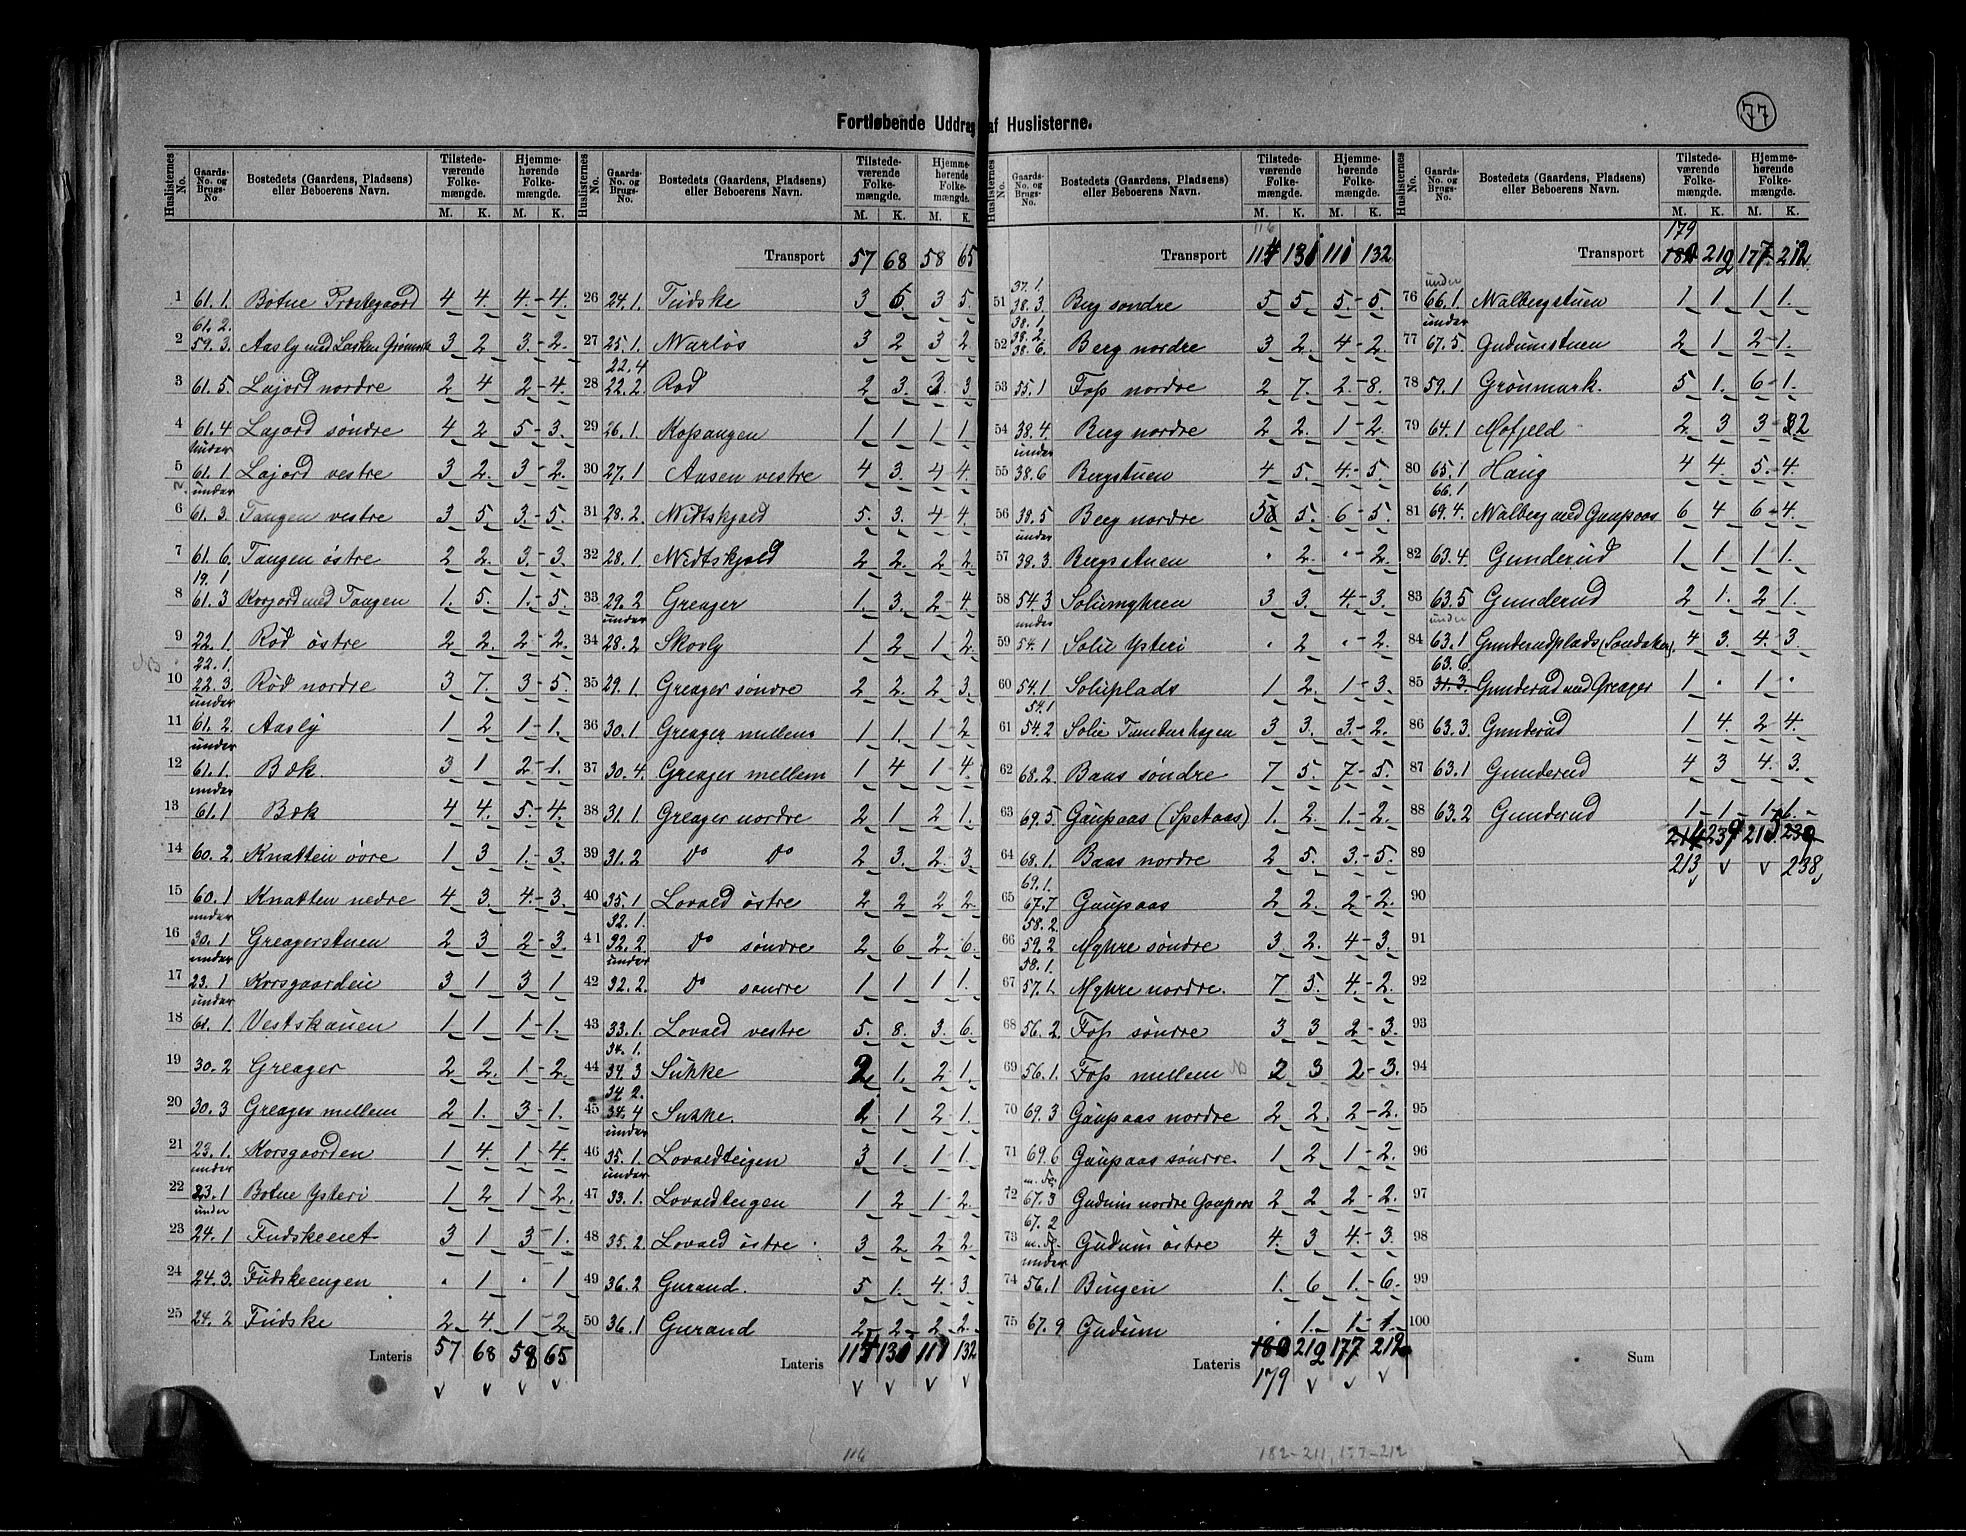 77
Fortløbende Uddrag af Huslisterne.
Huslisternes No. Gaards-No. og Brugs-No. Bostedets (Gaardens, Pladsens) eller Beboerens Navn. Tilstedeværende Folkemængde. M. K. Hjemmehørende Folkemængde. M. K.
1 61.1. Botne Prestegaard 4 4. 4.-4.
2 61.2. 59.3. Aasly med Løkken Grønmark 3 2 3.-2.
3 61.5 Lajord nordre 2 4 2-4.
4 61.4 Lajord søndre 4 2 5-3.
5 under 61.1 Lajord vestre 3 2. 3-2.
6 under 61.3 Tangen vestre 3 5. 3.-5.
7 61.6 Tangen østre 2 2. 3.-3.
8 19.1 61.3 Korjord med Tangen 1. 5. 1.-5.
9 22.1. Rød østre 2 2. 2-2.
10 22.1. 22.3. Rød nordre 3 7. 3-5.
11 under 61.2 Aasly 1 2 1-1.
12 under 61.1. Bæk. 3 1 2-1.
13 under 61.1 Bæk 4 4. 5.-4.
14 60.2 Knatten øvre 1 3 1.-3.
15 60.1 Knatten nedre 4 3. 4.-3.
16 under 30.1 Greagerstuen 2 3 2-3.
17 under 23.1 Korsgaardeie 3 1 3 1
18 under 61.1. Vestskauen 1 1 1-1.
19 30.2 Greager 2 2. 1-2.
20 30.3 Greager mellem 2 1. 3-1.
21 23.1. Korsgaarden 1 4. 1-4.
22 under 23.1 Botne Ysteri 1 2 1-2.
23 under 24.1 Fudskeeiet 3 1 3-1.
24 24.3. Fudskeengen . 1 . 1
25 24.2 Fudske 2 4. 1-2.
Lateris 57 68 58 65
Transport 57 68 58 65
26 24.1. Fudske 3 6 3 5.
27 25.1. Marløs 3 2 3 2.
28 22.4 22.2. Rød 2 3. 3. 3
29 26.1. Kopangen 1 1 1 1
30 27.1 Aasen vestre 4 3. 4 4.
31 28.2. Midtskjold 5. 3. 4 4.
32 28.1. Midtskjold 2 2. 2 2.
33 29.2 Greager 1. 3. 2-4.
34 under 28.2 Skovly 1 2 1-2.
35 29.1. Greager søndre 2 2. 2-3.
36 30.1 Greager mellem 1 1. 1-2.
37 30.4. Greager mellem 1 4 1-4.
38 31.1 Greager nordre 2 1 2 1.
39 31.2 Do Do 2 3. 2. 3.
40 35.1 Lovald østre 2 2 2 2.
41 32.1. 32.2 Do søndre 2 6 2. 6.
42 under 32.2. Do søndre 1 1 1 1.
43 33.1. Lovald vestre 5. 8. 3. 6.
44 34.1. 34.3 Sukke 2 1. 2 1.
45 34.2. 34.4 Sukke. 2 1 2 1.
46 under 35.1. Lovaldteigen 3 1. 1 1.
47 under 33.1. Lovaldteigen 1 2 1-2.
48 35.2. Lovald østre 3 2. 2 2.
49 36.2 Gurand. 5 1. 4. 3.
50 36.1 Gurand 2- 2. 2 2.
Lateris 114 131 111 132
116
116
Transport 114 131 111 132
51 37.1. 38.3. Berg søndre 5 5 5.-5
52 38.1 38.2. 38.6. Berg nordre 3 2. 4-2.
53 55.1 Fos nordre 2 7. 2.-8.
54 38.4. Berg nordre 2 2. 1-2.
55 under 38.6 Bergstuen 4 5. 4.-5.
56 38.5 Berg nordre 5 5. 6-5.
57 under 38.3. Bergsstuen . 2. .-2.
58 54.3 Soliemyhren 3 3. 4.-3.
59 under 54.1 Solie Ysteri . 2 .-2.
60 54.1 Solieplads 1 2. 1-3.
61 54.1 54.2 Solie Tanderhagen 3 3. 3.-2.
62 68.2. Baas søndre 7 5. 7-5.
63 69.5 Gaupaas (Spetaas) 1. 2. 1.-2.
64 68.1. Baas nordre 2 5. 3.-5.
65 69.1. 67.7 Gaupaas 2 2. 2-2.
66 58.2. 59.2 Myhre søndre 3 2. 4-3.
67 58.1. 57.1. Myhre nordre. 7 3. 4-2.
68 56.2. Fos søndre 3 3 2-3.
69 56.1. Fos mellem 2 3 2-3.
70 69.3 Gaupaas nordre 2 2. 2-2.
71 69.6 Gaupaas søndre. 1 2 1-2.
72 67.3 Gudum nordre Gaupaas 2 2 2-2.
73 67.2 Gudum østre 4. 3 4.-3.
74 under 56.1 Bingen 1. 6 1.-6.
75 67.9 Gudum . 1. 1-1.
Lateris 180 212 177 212
179
182-211, 177-212
179
Transport 180 212 177 212.
76 under 66.1 Valbergstuen 1 1 1 1.
77 under 67.5. Gudumstuen 2 1 2-1.
78 59.1 Grønmark. 5 1. 6-1.
79 64.1 Mofjeld 2 3 3-2
80 65.1 Haug 4 4. 5.-4.
81 66.1 69.4. Valberg med Gaupaas 6 4 6-4.
82 63.4. Gunderud 1 1 1 1.
83 63.5 Gunderud 2 1. 2 1.
84 under 63.1 Gunderudplads (Sandaker). 4 3. 4.-3.
85 63.6. 31.3. Gunderud med Greager 1 . 1 .
86 63.3 Gunderud 1 4. 2 4.
87 63.1 Gunderud 4 3 4. 3.
88 63.2 Gunderud 1-1- 1-1.
89 214 239 215 239
213 238
90
91
92
93
94
95
96
97
98
99
100
Sum